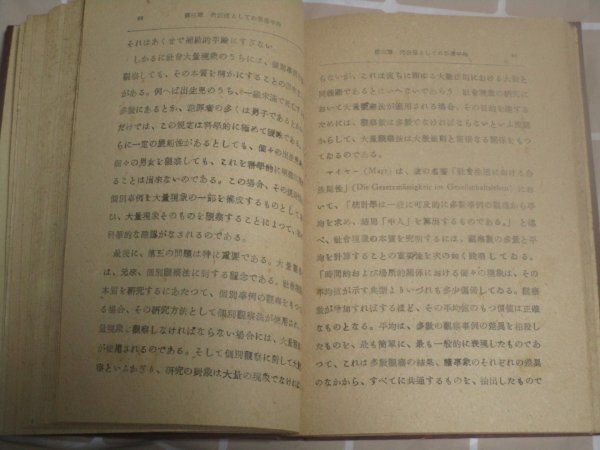 68 第三章 代表値としての集團平均
それはあくまで補助的手段にすぎない。
しかるに社會大量現象のうちには、個別事例を
觀察しても、その本質を明かにすることの出來ない
がある。例へば出生兒のうち、
多數にあるとか、犯罪者の多くは男子であるとか
だけでは、この規定は科學的に極めて曖昧である。
らに一定の規則性があるとしても、個々の出生
個々の男女を觀察しても、これを科學的に
ることは出來ないのである。この場合、その
個別事例を大量現象の一部を構成するものとして
ひ、大量現象そのものを觀察することによつて、
科學的な認識がなされるのである。
最後に、第三の問題は特に重要である。大量觀
は、元來、個別觀察法に對する概念である。社會
本質を研究するにあたつて、個別事例の觀察をもつ
る場合、その研究方法として個別觀察法が使用され、
量現象を觀察しなければならない場合には、大量
が使用されるのである。そして個別觀察に對して大
察といふかぎり、研究の對象は大量の現象でなけれ
第三章 代表値としての集團平均
らないが、これは直ちに斯かる大量法則における大量と
同義語であるとはいへないであらう。社會現象の研究に
おいて大量觀察法が使用される場合、その目的を達する
ためには、觀察數は多數でなければならないといふ見地
からして、大量觀察法は大數法則と密接なる關係をもつ
てゐるのである。
マイヤー (Mayr) は、彼の名著「社會生活における合
法則性」(Die Gesetzmässigkeit im Gesellschaftsleben) にお
いて、「統計學は一般に可及的に多數の事例の觀察から平
均を求め、結局「中人」を算出するものである。」と述
べ、社會現象の本質を究明するには、觀察數の多量と平
均を計算することの重要性を次の如く敍述してゐる。
「時間的および場所的關係における個々の現象は、その
平均値が示す典型よりいづれも多少偏倚してゐる。觀察
數が増加すればするほど、その平均値のもつ價値は正確
なものとなる。平均は、多數の觀察事例の差異を相殺し
たものを、最も簡單に、最も一般的に表現したものであ
つて、これは多數觀察の結果、諸事象のそれぞれの差異
のなかから、すべてに共通するものを、抽出したもので